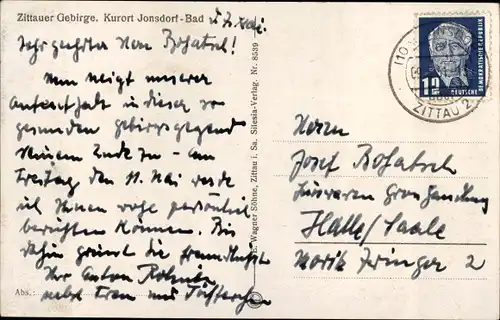 Zittauer Gebirge. Kurort Jonsdorf-Bad
Sehr geehrter Herr Bohatsch!
Nun neigt unserer
Aufenthalt in dieser so
gesunden Gebirgsgegend
seinem Ende zu - Am
Freitag den 11. Mai werde
ich Ihnen wohl persönlich
berichten können. Bis
dahin grüsst Sie freundlichst
Ihr Anton
nebst Frau und Töchterchen
Abs.:
E. Wagner Söhne, Zittau i. Sa. Silesia-Verlag. Nr. 8539
ZITTAU 2
12
DEUTSCHE
DEMOKRATISCHE REPUBLIK
Herrn
Josef Bohatsch
Grosshandlung
Halle/Saale
Moritz Zwinger 2